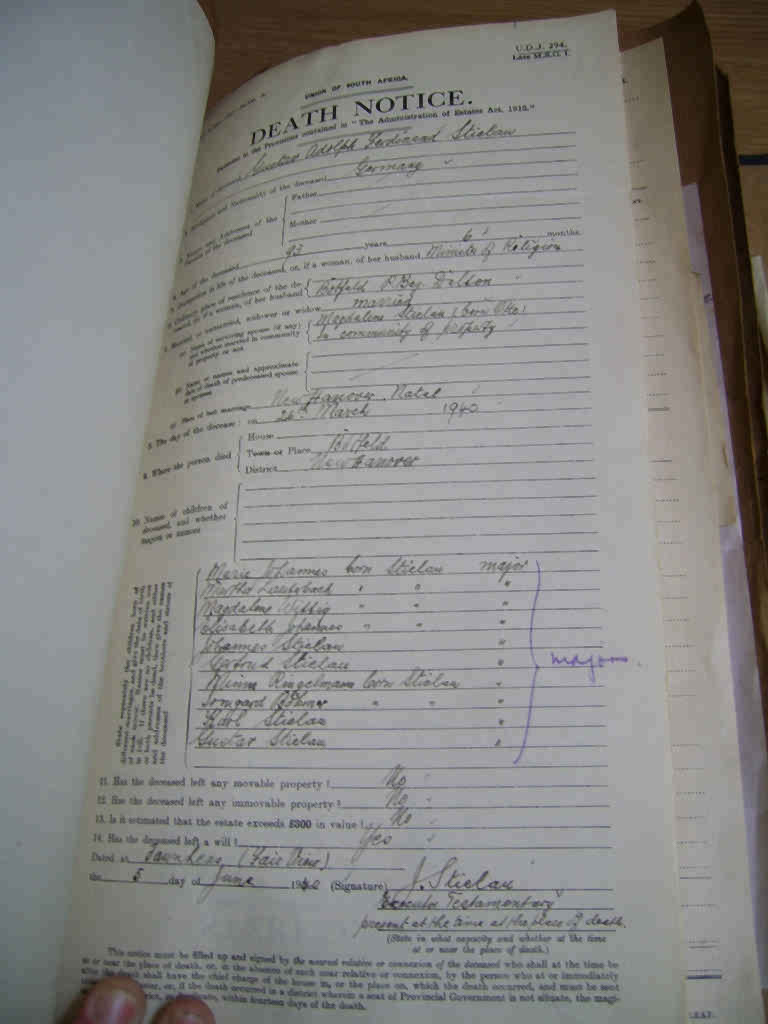 U.D.J. 294.
Late M.S.O. 1.
UNION OF SOUTH AFRICA.
DEATH NOTICE.
Pursuant to the Provisions contained in "The Administration of Estates Act, 1913."
Gustav Adolph Ferdinand Stielau
and Nationality of the deceased Germany
Names and Addresses of the Parents of the deceased
Father
Mother
Age of the deceased 93 years 6 months
in life of the deceased, or, if a woman, of her husband Minister of Religion
place of residence of the deceased, or, if a woman, of her husband P. Bag Dalton
Married or unmarried, widower or widow married
Name of surviving spouse (if any) and whether married in community of property or not
Magdalene Stielau (born Otte)
in community of property
Name or names and approximate date of death of predeceased spouse or spouses
Place of last marriage New Hanover, Natal
8. The day of the decease: on 26th March 1940
9. Where the person died
House
Town or Place
District New Hanover
10. Names of children of deceased, and whether majors or minors
Marie Johannes born Stielau major
Martha " " "
Magdalene Wittig " " "
Elisabeth Johannes " " "
Johannes Stielau "
Gertrud Stielau "
Minna Ringelmann born Stielau "
Irmgard " " "
Karl Stielau "
Gustav Stielau "
majors
11. Has the deceased left any movable property? No
12. Has the deceased left any immovable property? No
13. Is it estimated that the estate exceeds £300 in value? No
14. Has the deceased left a will? Yes
Dated at
the 5 day of June 1940 (Signature) J. Stielau
Executor Testamentary
present at the time at the place of death.
(State in what capacity and whether at the time at or near the place of death.)
This notice must be filled up and signed by the nearest relative or connexion of the deceased who shall at the time be
at or near the place of death, or, in the absence of such near relative or connexion, by the person who at or immediately
after the death shall have the chief charge of the house in, or the place on, which the death occurred, and must be sent
or, if the death occurred in a district wherein a seat of Provincial Government is not situate, the magi-
within fourteen days of the death.